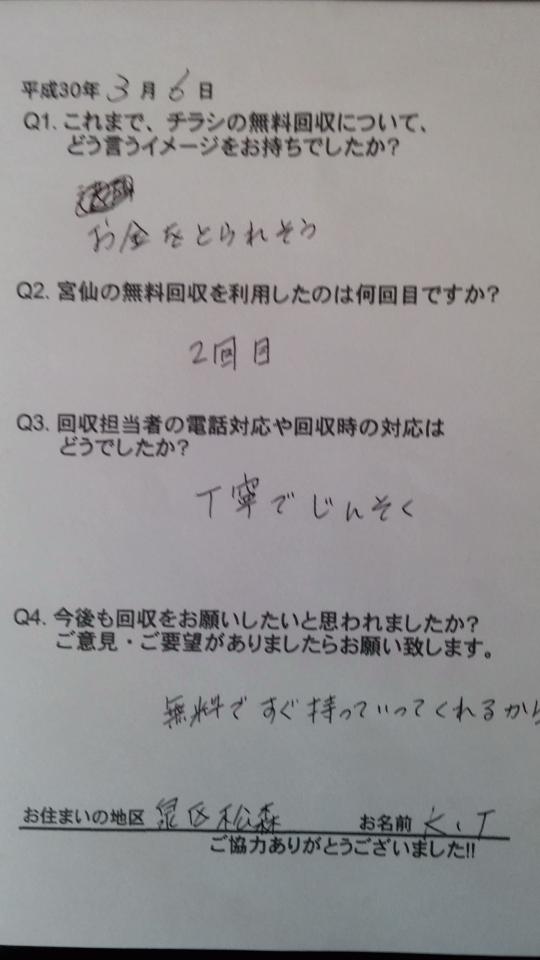 平成30年 3月 6日
Q1. これまで、チラシの無料回収について、
どう言うイメージをお持ちでしたか?
お金をとられそう
Q2. 宮仙の無料回収を利用したのは何回目ですか?
2回目
Q3. 回収担当者の電話対応や回収時の対応は
どうでしたか?
丁寧でじんそく
Q4. 今後も回収をお願いしたいと思われましたか?
ご意見・ご要望がありましたらお願い致します。
無料ですぐ持っていってくれるから
お住まいの地区 泉区松森 お名前 K.T
ご協力ありがとうございました!!